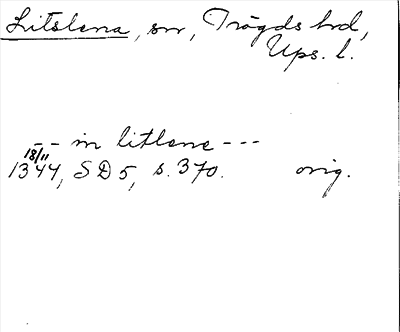 Litslena, sn, Trögds hd,
Ups. l.
-- in litlene ---
18/11
1344, SD 5, s. 370. orig.